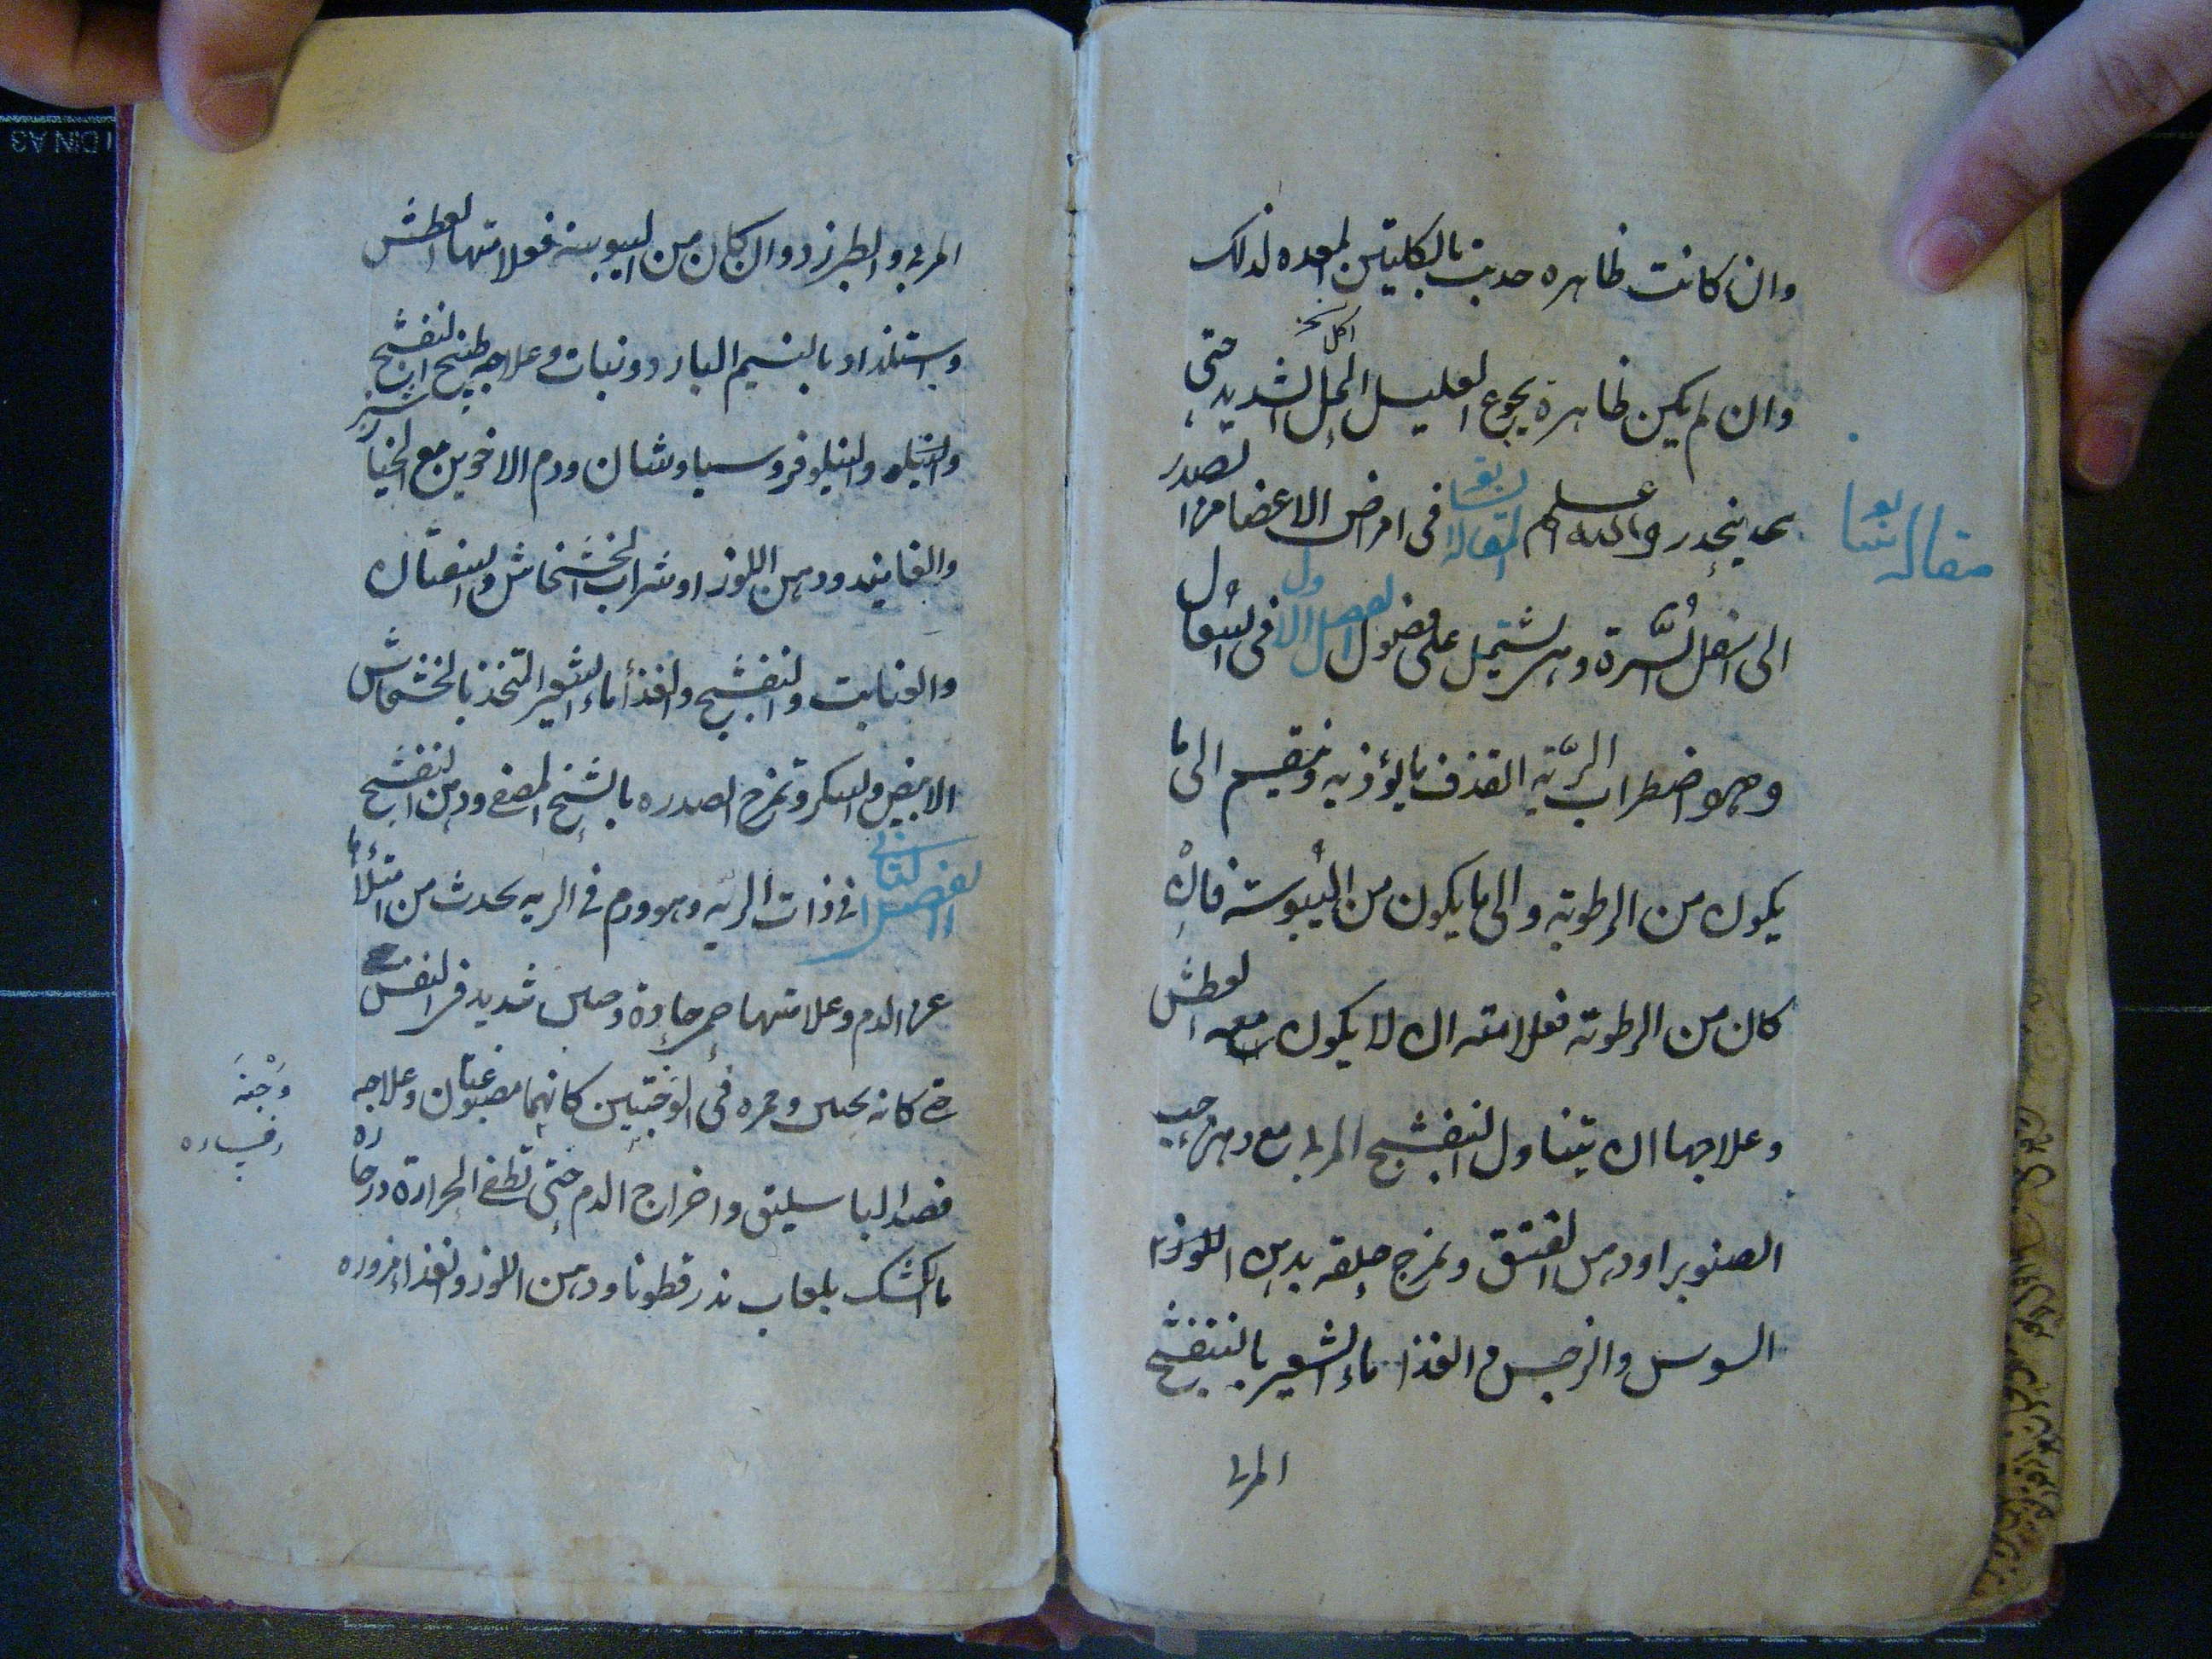 وان كانت ظاهره حدبت بالكلبتين المعده لذلك
اكل نخ
وان لم يكن ظاهرة يجوع العليل الشديد حتى
ينحدر والله اعلم المقالة السابعة فى امراض الاعضا من الصدر
مقاله
الى اسفل السّرة وهى يشتمل على فصول الفصل الاول فى السُعال
وهو اضطراب الريّة القذف ما يؤذيه وينقسم الى ما
يكون من الرطوبة والى ما يكون من اليُبوسته فان
كان من الرطوبة فعلامته ان لا يكون معه العطش
وعلاجها ان يتناول البنفشج المربى مع دهن حب
الصنوبر او دهن الفستق ويمرخ حلقه بدهن اللوز
السوسن والنرجس والغذا ماء الشعير بالبنفشج
المربى
المربى والطبرزد وان كان من اليبوسة فعلامتها العطش
واستلذاذ بالنسيم البارد ونبات وعلاجه طبيخ البنفشج
والنيلوفر وسياوشان ودم الاخوين مع الخيار شنبر
والفانيد ودهن اللوز او شراب الخشخاش
والبنفشج والغذأ ماء الشعير المتخذ بالخشخاش
الابيض والسكر وتمرخ الصدره بالشخ المصفى ودهن البنفشج
الفصل الثانى فى ذات الريّه وهو ورم فى الريه يحدث من امتلأها
عن الدم وعلامتها حمى حاده وضيق شديد فى النفس
حتى كانه يختنق وحمره فى الوجنتين كانهما مصبوغتان وعلاجه
وَجْنَه
رخساره
فصد الباسليق واخراج الدم حتى تطفى الحرارة
ماء الكشك بلعاب بذرقطونا ودهن اللوز والغذا مزوره